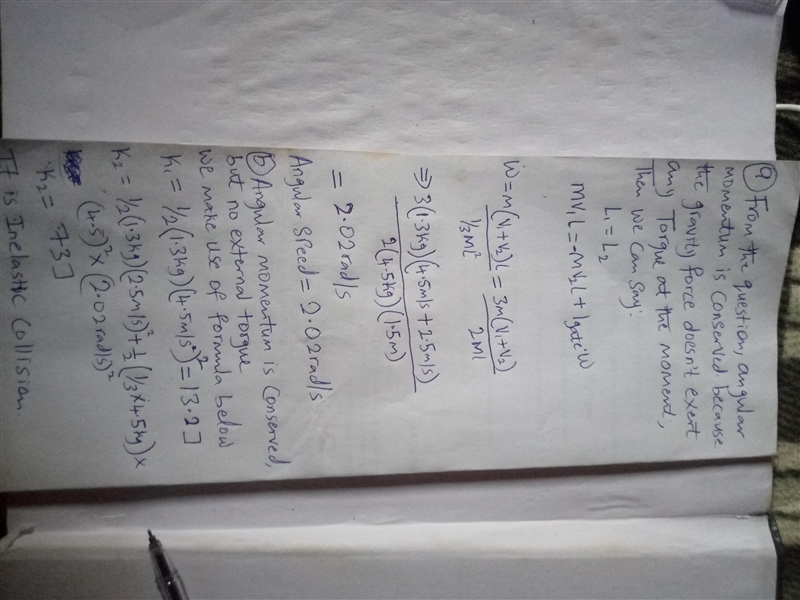 (a) From the question, angular
momentum is conserved because
the gravity force doesn't exert
any Torque at the moment,
Then we can say:
L₁ = L₂
mv₁L = -mv₂L + Igate·W
W = m(V₁+V₂)L / ⅓ML² = 3m(V₁+V₂) / 2ML
⇒ 3(1.3kg)(4.5m/s + 2.5m/s) / 2(4.5kg)(1.5m)
= 2.02rad/s
Angular speed = 2.02rad/s
(b) Angular momentum is conserved,
but no external torque
we make use of formula below
K₁ = 1/2(1.3kg)(4.5m/s)² = 13.2J
K₂ = 1/2(1.3kg)(2.5m/s)² + ½(⅓×4.5kg)×
(4.5)² × (2.02rad/s)²
K₂ = 73J
It is Inelastic Collision.